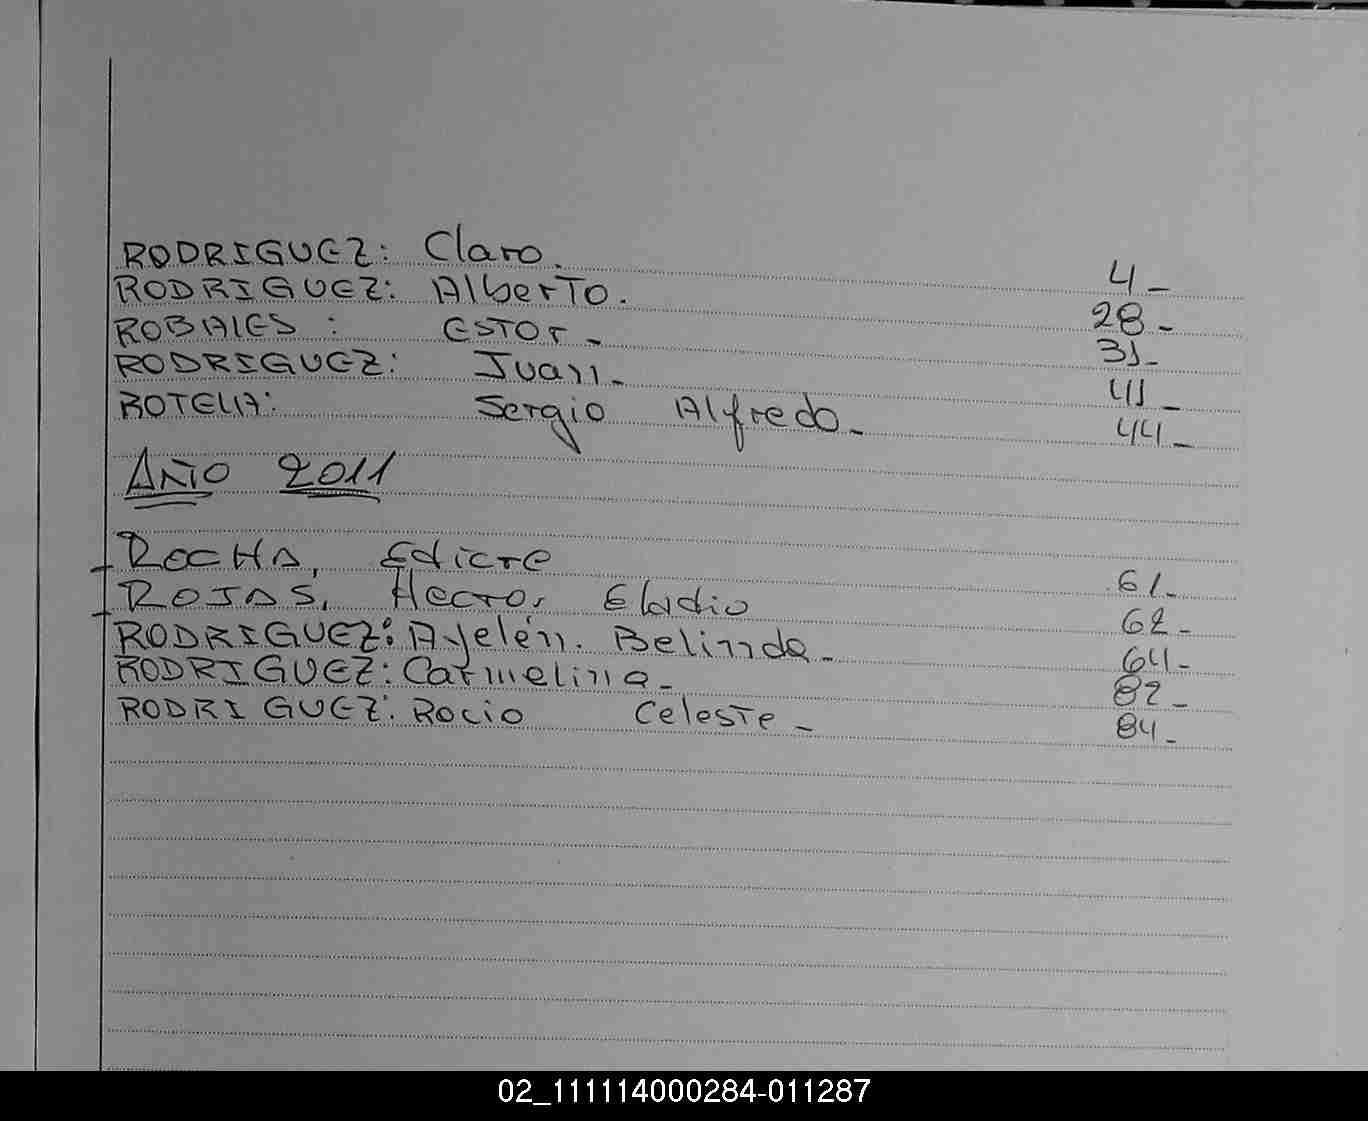 RODRIGUEZ: Claro. 4_
RODRIGUEZ: Alberto. 28_
ROBALES: ESTOR_ 31_
RODRIGUEZ: Juan_ 41_
ROTELIA: Sergio Alfredo_ 44_
AÑO 2011
ROCHA, Edicte 61_
ROJAS, Hector Eladio 62_
RODRIGUEZ: Ayelén. Belinda_ 64_
RODRIGUEZ: Carmelina_ 82_
RODRIGUEZ: Rocio Celeste_ 84_
02_111114000284-011287